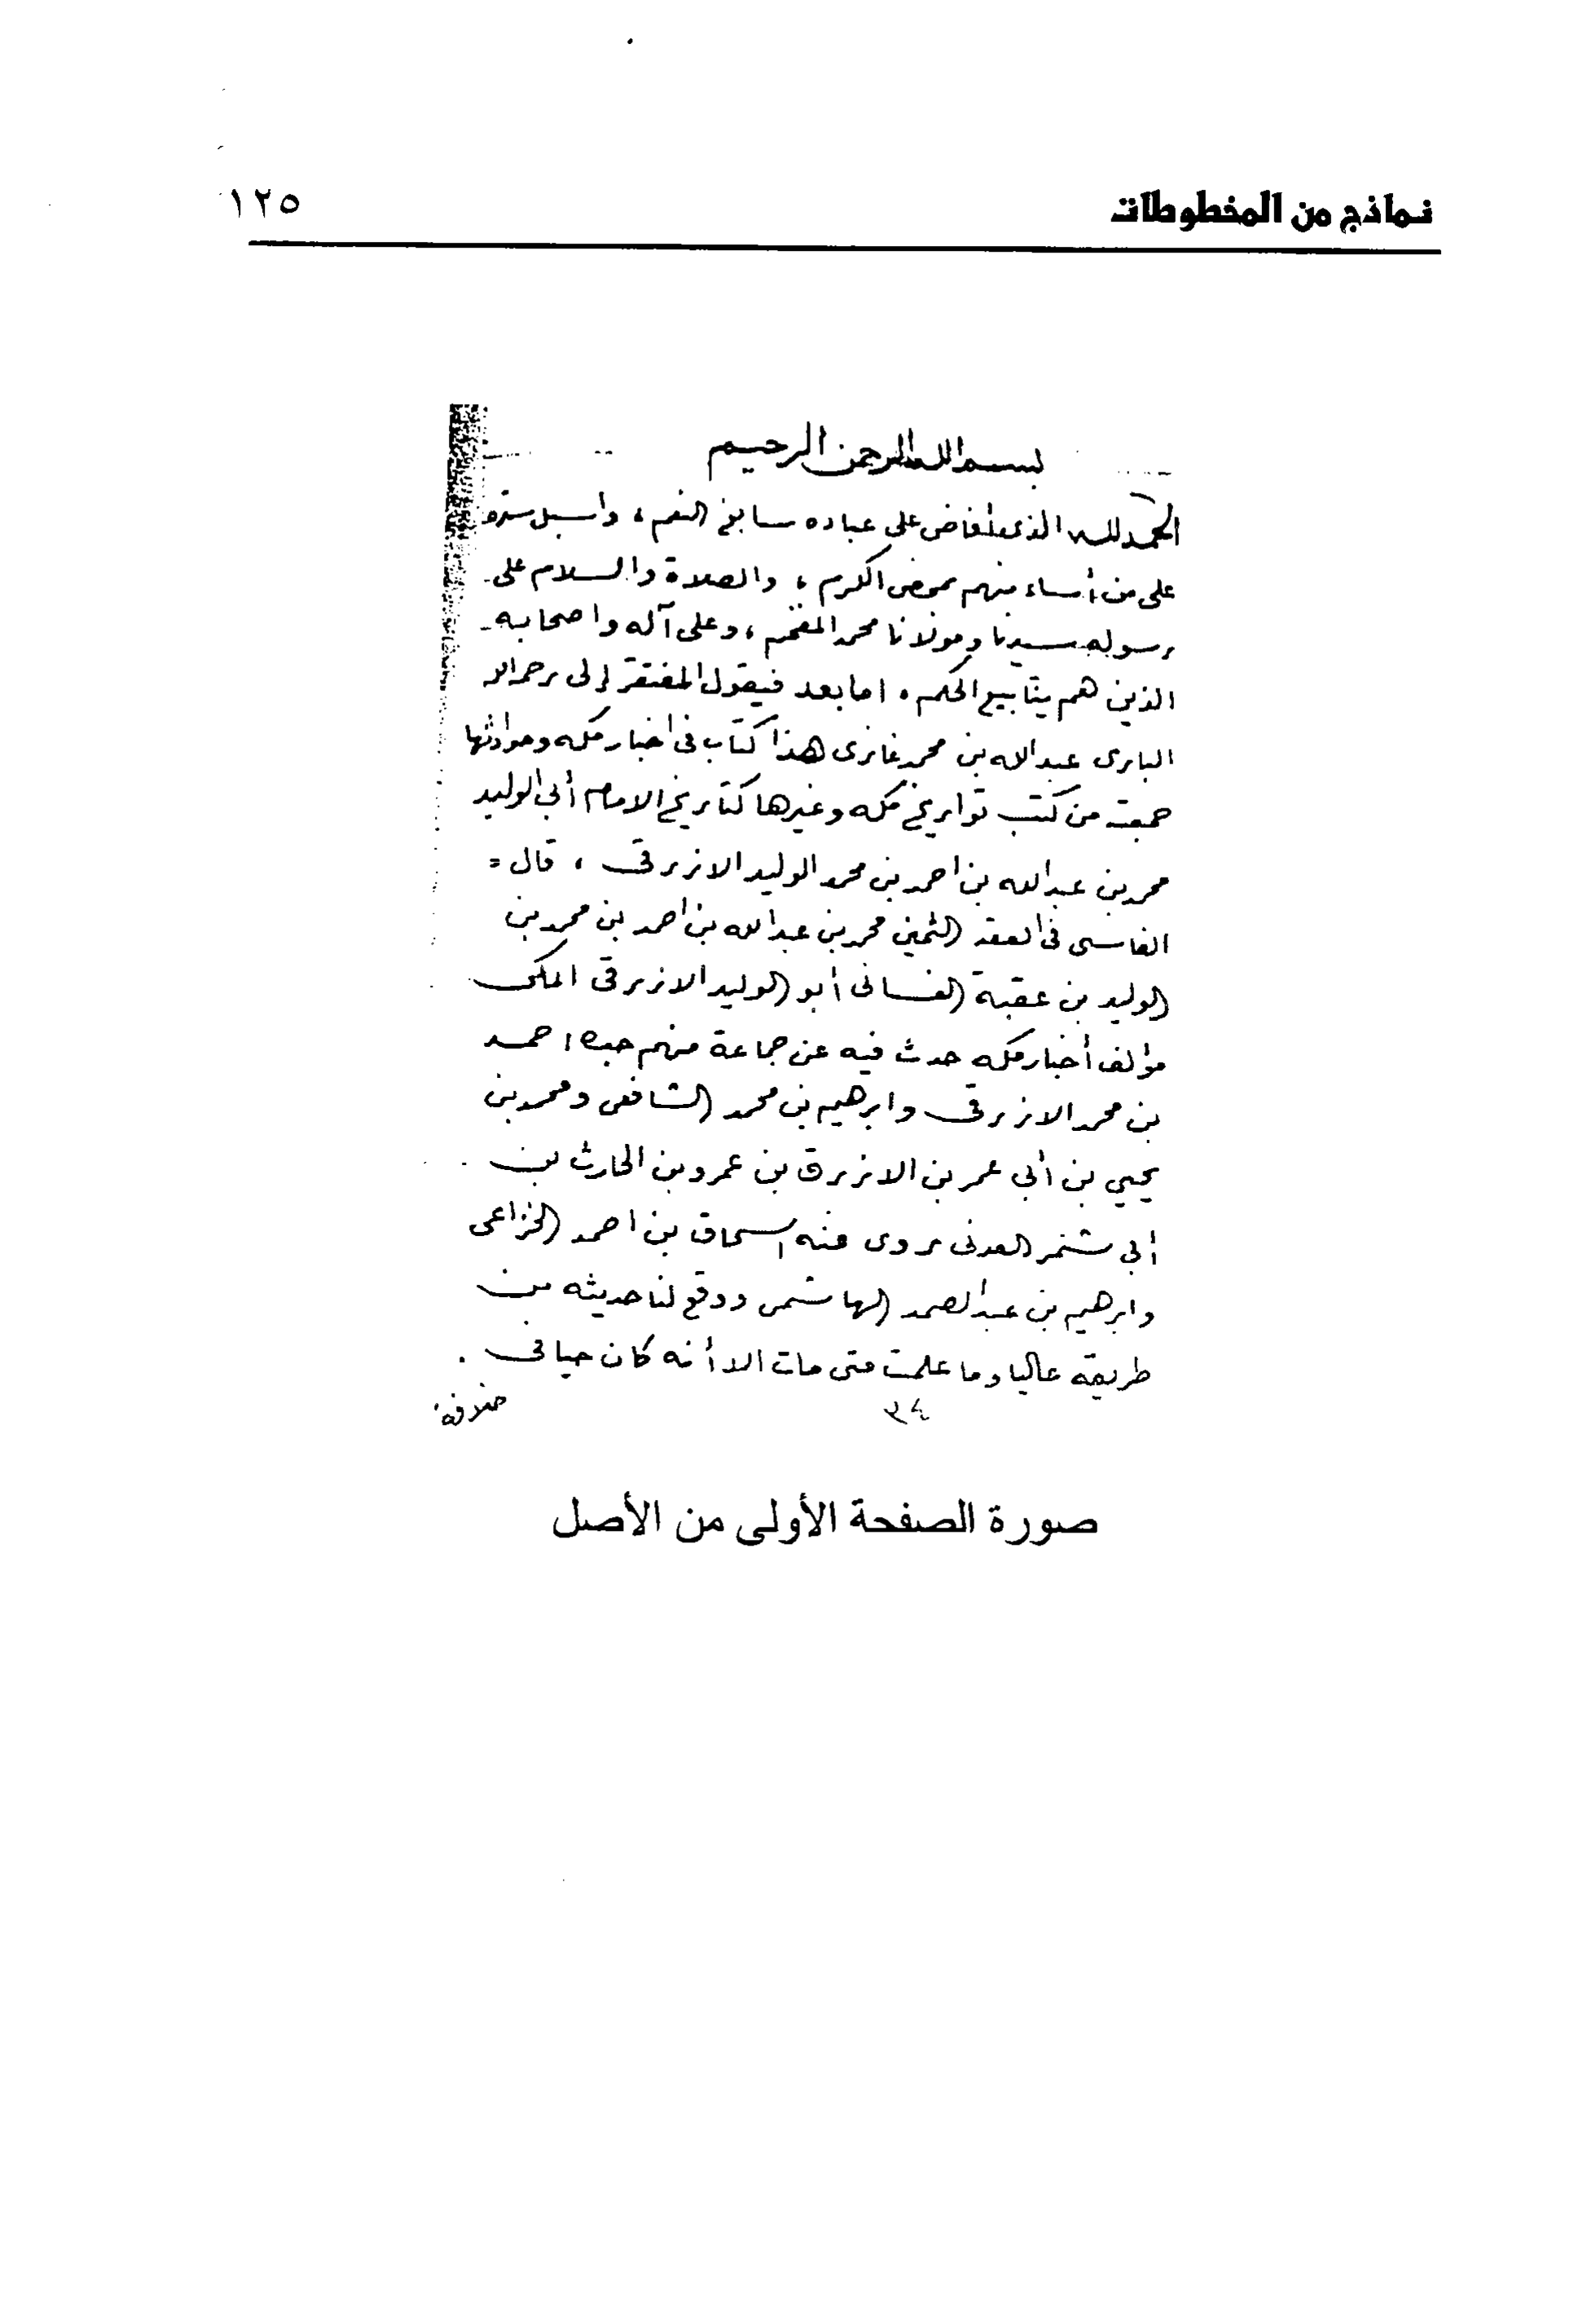 نماذج من المخطوطات
١٢٥
بسم الله الرحمن الرحيم
الحمد لله الذى أفاض على عباده سابغ النعم ، واسبل ستره
على من أساء منهم بمحض الكرم ، والصلاة والسلام على
رسوله سيدنا ومولانا محمد المفخم ، وعلى آله واصحابه
الذين هم ينابيع الحكم . اما بعد فيقول المفتقر إلى رحم الله
البارى عبد الله بن محمد غازى هذا كتاب فى اخبار مكه وحوادثها
جمعته من كتب تواريخ مكه وغيرها كتاريخ الامام أبى الوليد
محمد بن عبد الله بن احمد بن محمد الوليد الازرقى ، قال =
الفاسى فى العقد الثمين محمد بن عبد الله بن احمد بن محمد بن
الوليد بن عقبة الغسانى أبو الوليد الازرقى المكى
مؤلف أخبار مكه حدث فيه عن جماعة منهم جده احمد
بن محمد الازرقى وابرهيم بن محمد الشافعى ومحمد بن
يحيى بن أبى عمر بن الازرق بن عمرو بن الحارث بن
أبى شمر العدنى روى عنه اسحاق بن احمد الخزاعى
وابرهيم بن عبد الصمد الهاشمى ووقع لنا حديثه من
طريقه عاليا وما علمت متى مات الا أنه كان حيا فى .
خلافة
٣٤
صورة الصفحة الأولى من الأصل